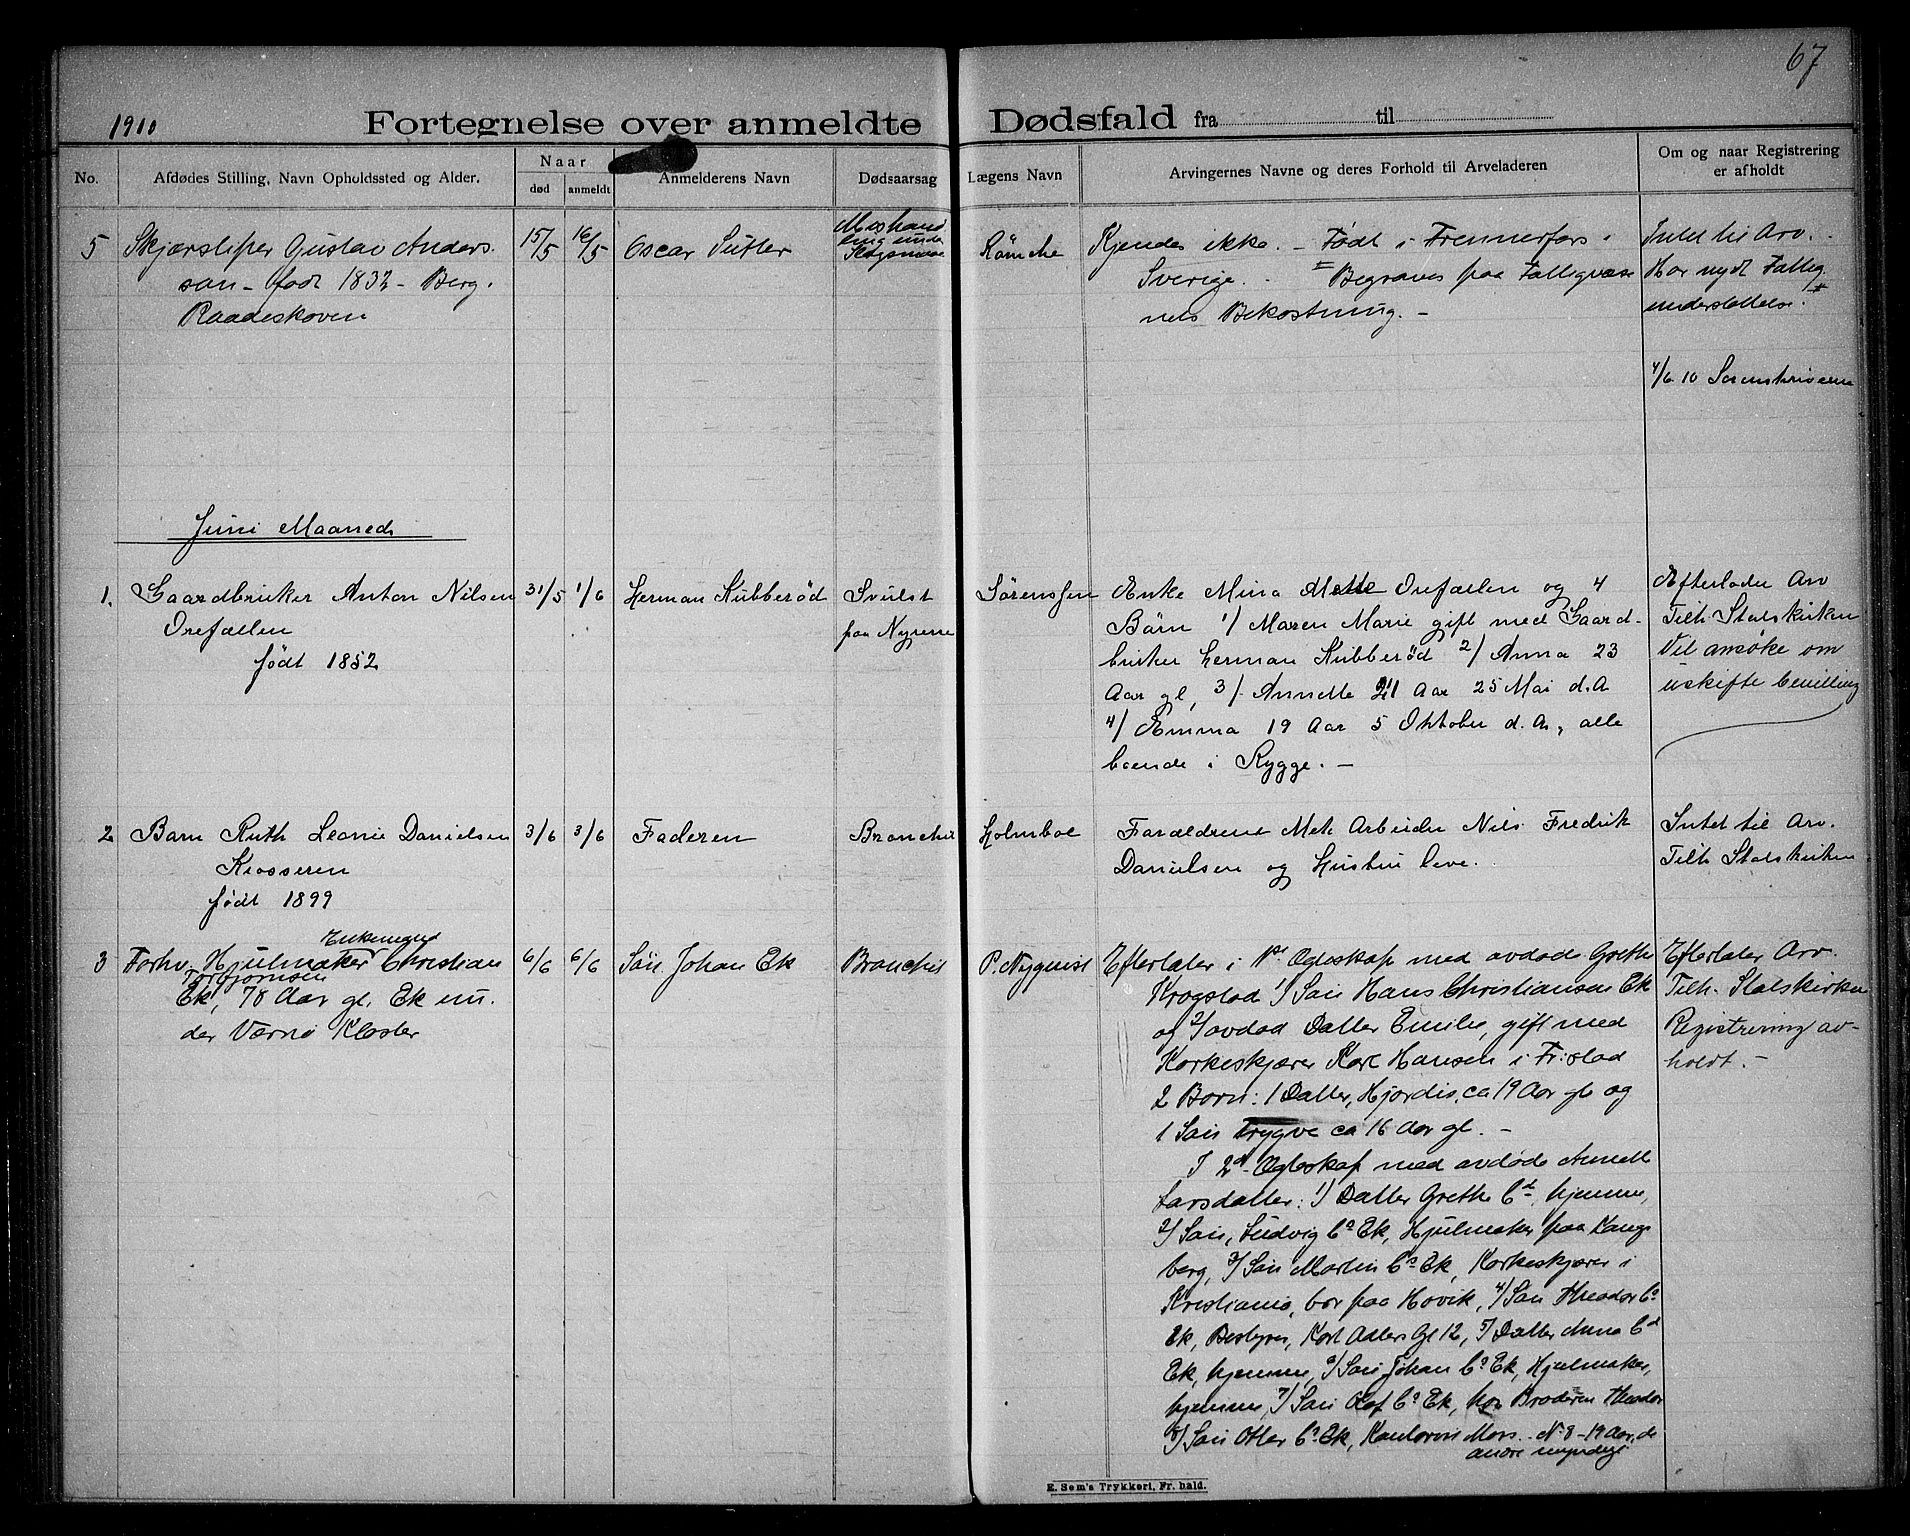 67
1910 Fortegnelse over anmeldte Dødsfald fra til
No.
Afdødes Stilling, Navn Opholdssted og Alder.
Naar
død anmeldt
Anmelderens Navn
Dødsaarsag
Lægens Navn
Arvingernes Navne og deres Forhold til Arveladeren
Om og naar Registrering
er afholdt
5 Skjærsliper Gustav Anders
son - født 1832 - Berg.
Raadeskoven
15/5 16/5
Oscar Sutter
Mishand
ling
Rømcke
Kjendes ikke. - Født i Frennerfors i
Sverige. - Begraves paa Fattigvæse
nets Bekostning. -
Intet til Arv. -
Har nydt Fattig
understøttelse.
4/6 10 Sorenskriveren
Juni Maaned
1. Gaardbruker Anton Nilsen
Orefællen
født 1852
31/5 1/6
Herman Kubberød
Svulst
paa Nyrene
Sørenssen
Enke Mina Mette Orefællen og 4
Børn 1/ Maren Marie gift med Gaard-
bruker Herman Kubberød 2/ Anna 23
Aar gl, 3/ Annette 21 Aar 25 Mai d.A
4/ Emma 19 Aar 5 Oktober d. A, alle
boende i Rygge. -
Efterlader Arv
Tilh. Statskirken
Vil ansøke om
uskifte bevilling
2 Barn Ruth Leonie Danielsen
Kiosseren
født 1899
3/6 3/6
Faderen
Bronchit
Holmboe
Forældrene Mek Arbeider Nils Fredrik
Danielsen og Hustru leve.
Intet til Arv.
Tilh Statskirken
3 Forhv. Hjulmaker Enkemand Christian
Torbjørnsen
Ek, 78 Aar gl. Ek un.
der Værne Kloster
6/6 6/6
Søn Johan Ek
Bronchit
P. Nyquist
Efterlater i 1ste Egteskap med avdøde Grethe
Krogstad 1/ Søn Hans Christiansen Ek
og 2/ avdød Datter Emilie, gift med
Korkeskjærer Karl Hansen i Fr:stad
2 Born: 1 Datter, Hjørdis, ca 19 Aar gl og
1 Søn Trygve ca 16 Aar gl. -
I 2d Egteskap med avdøde Annette
Larsdatter: 1/ Datter Grethe Cd. hjemme,
2/ Søn, Ludvig Cn Ek, Hjulmaker paa Kongs
berg, 3/ Søn Martin Cn Ek, Korkeskjærer i
Kristiania, bor paa Høvik, 4/ Søn Theodor Cn
Ek, Bestyrer, Karl Adlers Gt 12, 5/ Datter Anna Cd
Ek, hjemme, 6/ Søn Johan Cn Ek, Hjulmaker,
hjemme, 7/ Søn Olaf Cn Ek, hos Broderen Theodor
8/ Søn Otter Cn Ek, Kontorist Moss. - N. 8 - 19 Aar, de
andre myndige
Efterlater Arv.
Tilh. Statskirken
Registrering av-
holdt. -
E. Sem's Trykkeri, Fr. hald.